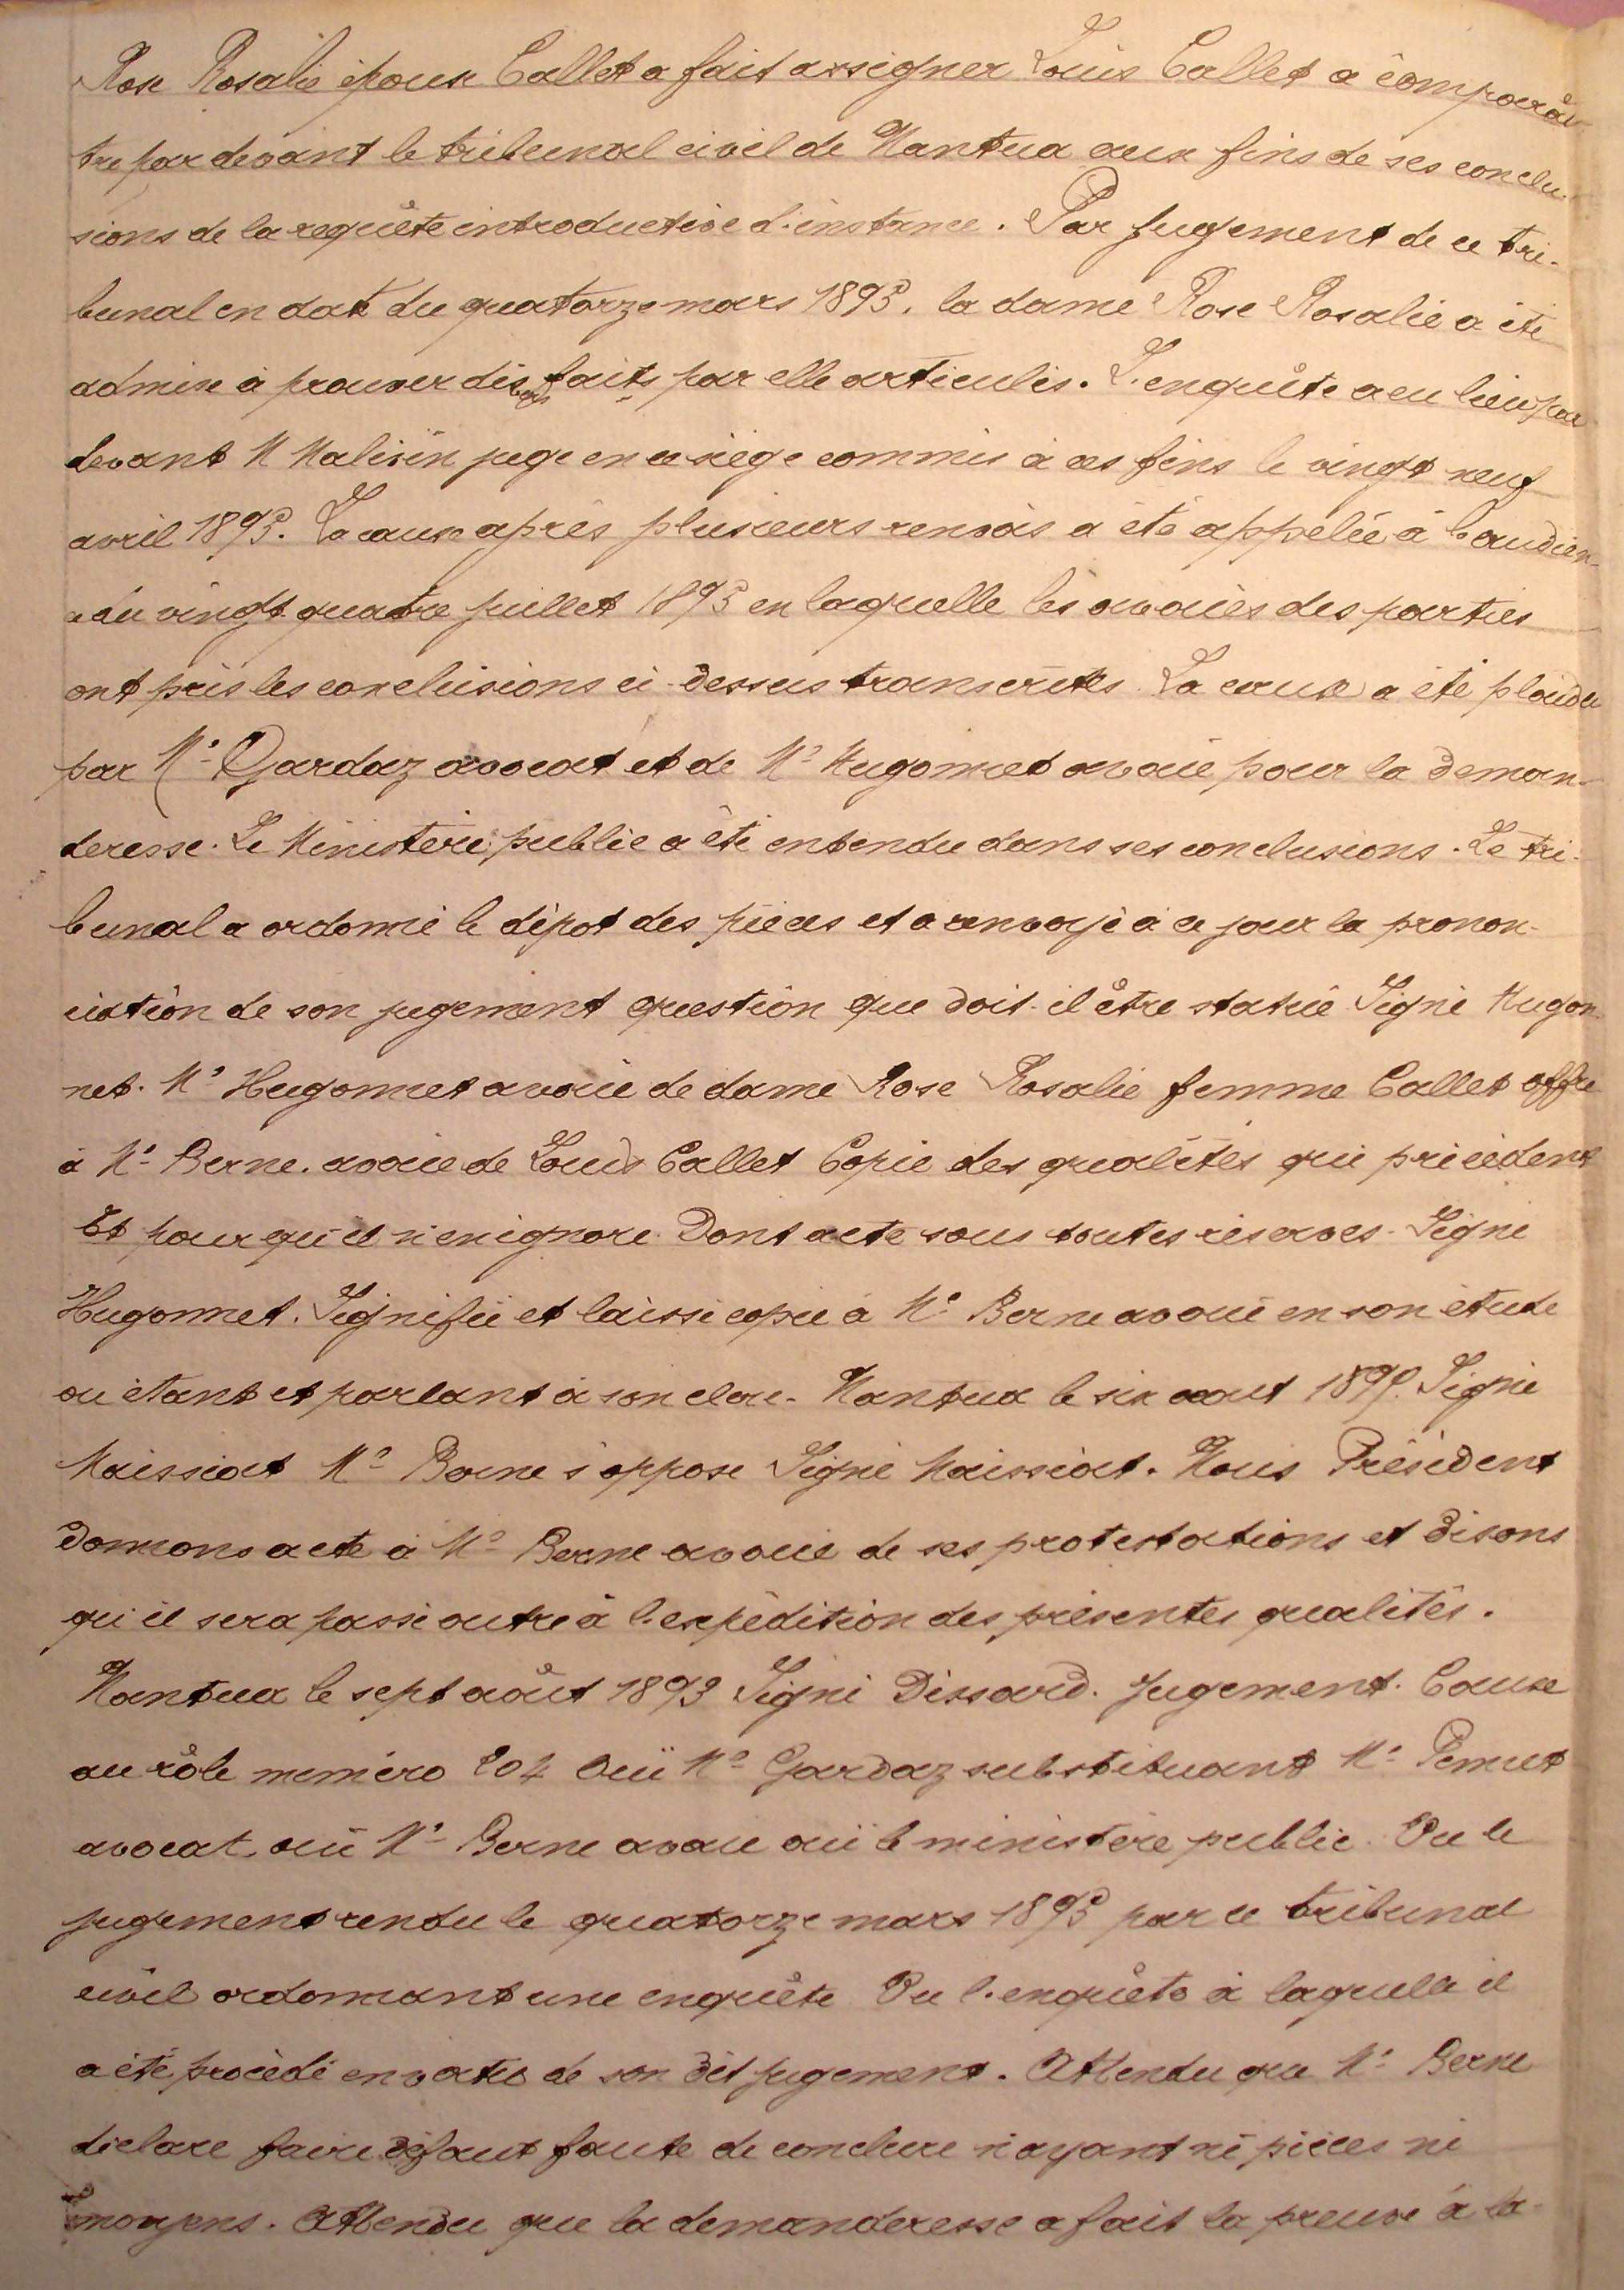 Rose Rosalie épouse Callet a fait assigner Louis Callet a comparaî
tre par devant le tribunal civil de Nantua aux fins de ses conclu-
sions de la requête introductive d'instance. Par jugement de ce tri-
bunal en date du quatorze mars 1893, la dame Rose Rosalie a été
admise à prouver divers faits par elle articulés. L'enquête a eu lieu par
devant M juge en ce siège commis à ces fins le vingt neuf
avril 1893. La cause après plusieurs renvois a été appelée à l'audien-
ce du vingt quatre juillet 1893 en laquelle les avoués des parties
ont pris les conclusions ci-dessus transcrites. La cause a été plaidée
par Me Gardaz avocat et de Me Hugonnet avoué pour la deman-
deresse. Le Ministère public a été entendu dans ses conclusions. Le tri-
bunal a ordonné le dépot des pièces et a renvoyé à ce jour la pronon-
ciation de son jugement question que doit-il être statué Signé Hugon-
net. Me Hugonnet avoué de dame Rose Rosalie femme Callet offre
à Me Berne. avoué de Louis Callet Copie des qualités qui précèdent
Et pour qu'il n'en ignore Dont acte sous toutes réserves - Signé
Hugonnet. Signifié et laissé copie à Me Berne avoué en son étude
ou étant et parlant à son clerc - Nantua le six aout 1893. Signé
Maissiat Me Berne s'oppose Signé Maissiat. Nous Président
Donnons acte à Me Berne avoué de ses protestations et disons
qu'il sera passé outre à l'expédition des présentes qualités.
Nantua le sept août 1893 Signé Dissard. Jugement. Cause
au rôle numéro 204 Ouï Me Gardaz substituant Me Pernet
avocat, ouï Me Berne avoué ouï le ministère public. Vu le
jugement rendu le quatorze mars 1893 par ce tribunal
civil ordonnant une enquête Vu l'enquête à laquelle il
a été procédé en vertu de son dit jugement. Attendu que Me Berne
déclare faire défaut faute de conclure n'ayant ni pièces ni
moyens. Attendu que la demanderesse a fait la preuve à la